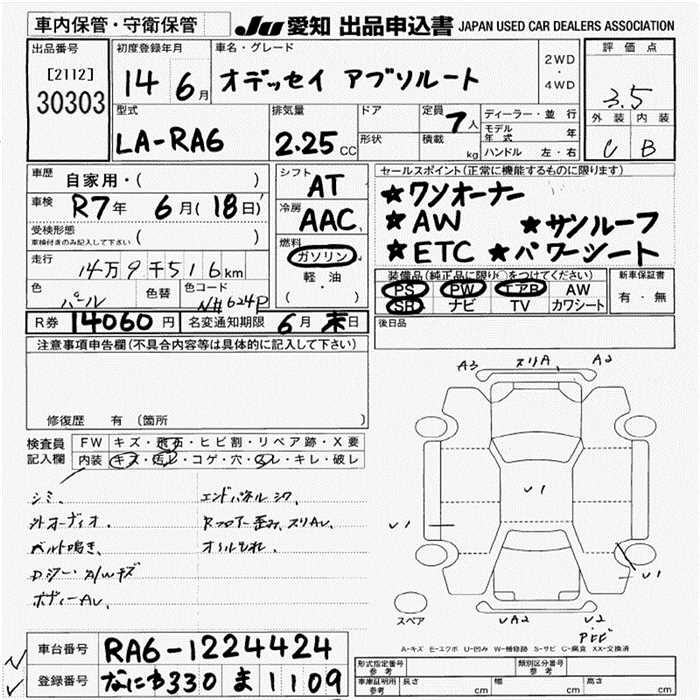 車内保管・守衛保管
JU 愛知 出品申込書 JAPAN USED CAR DEALERS ASSOCIATION
出品番号
[2112]
30303
初度登録年月
14 6月
車名・グレード
オデッセイ アブソルート
2WD
・
4WD
評価点
3.5
外装 内装
C B
型式
LA-RA6
排気量
2.25 CC
ドア
形状
定員 7人
積載 kg
ディーラー・並行
モデル年式 年
ハンドル 左・右
車歴 自家用・( )
車検 R7年 6月(18日)
受検形態
車検付きのみ記入して下さい ( )
走行 14万9千516km
色 パール
色替
色コード NH624P
シフト AT
冷房 AAC
燃料
ガソリン
軽・油
( )
セールスポイント(正常に機能するものに限ります)
★ワンオーナー
★AW ★サンルーフ
★ETC ★パワーシート
装備品(純正品に限り○をつけてください)
PS PW エアB AW
SR ナビ TV カワシート
新車保証書
有・無
R券 14060円 名変通知期限 6月末日
後日品
注意事項申告欄(不具合内容等は具体的に記入して下さい)
修復歴 有 (箇所 )
検査員記入欄
FW キズ・飛石・ヒビ割・リペア跡・X要
内装 キズ・汚レ・コゲ・穴・スレ・キレ・破レ
シミ、
外オーディオ、
ベルト鳴き、
ボディーAU、
エンドパネルシワ
Rフロアー歪み、スリAU、
オイルもれ、
A3 スリA、 A2
U1
U1
U1
UA2 U2
スペア
A-キズ E-エクボ U-凹み W-補修跡 S-サビ C-腐食 XX-交換済
車台番号 RA6-1224424
登録番号 なにわ330 ま 1109
形式指定番号 参考
類別区分番号 参考
車庫証明用 参考 長さ cm 幅 cm 高さ cm